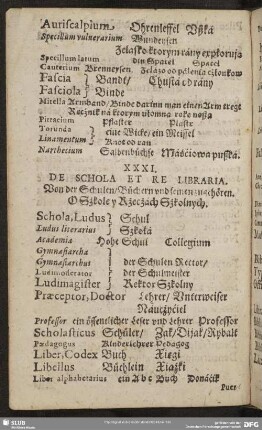 Auriscalpium Ohrenleffel Uszká
Specillum vulnerarium Wundeysen
Żelazko ktorym rány exploruią
Specillum latum ein Spatel Spatel
Cauterium Brenneysen Żelázo do pálenia członkow
Fascia } Bandt/ Chustá od rány
Fasciola } Binde
Mitella Armband/ Binde darinn man einen Arm tregt
Ręcznik ná ktorym ułomną rękę noszą
Pittacium Pflaster Plastr
Torunda } eine Wicke/ ein Meissel
Linamentum } Knot od ran
Narthecium Salbenbüchse Máściowa puszká.
XXXI.
DE SCHOLA ET RE LIBRARIA.
Von der Schulen/ Büchern und seinem zugehören.
O Szkole y Rzeczách Szkolnych.
Schola, Ludus } Schul
Ludus literarius } Szkołá
Academia Hohe Schul Collegium
Gymnasiarcha
Gymnasiarchus } der Schulen Rector/
Ludimoderator } der Schulmeister
Ludimagister } Rektor Szkolny
Præceptor, Doctor Lehrer/ Unterweiser
Náuczyćiel
Professor ein öffentlicher Leser und Lehrer Professor
Scholasticus Schüler/ Żak/ Dijak/ Rybált
Pædagogus Kinderlehrer Pedagog
Liber, Codex Buch Xięgi
Libellus Büchlein Xiąszki
Liber alphabetarius ein Abc Buch Donácik
Puer
SLUB
DFG